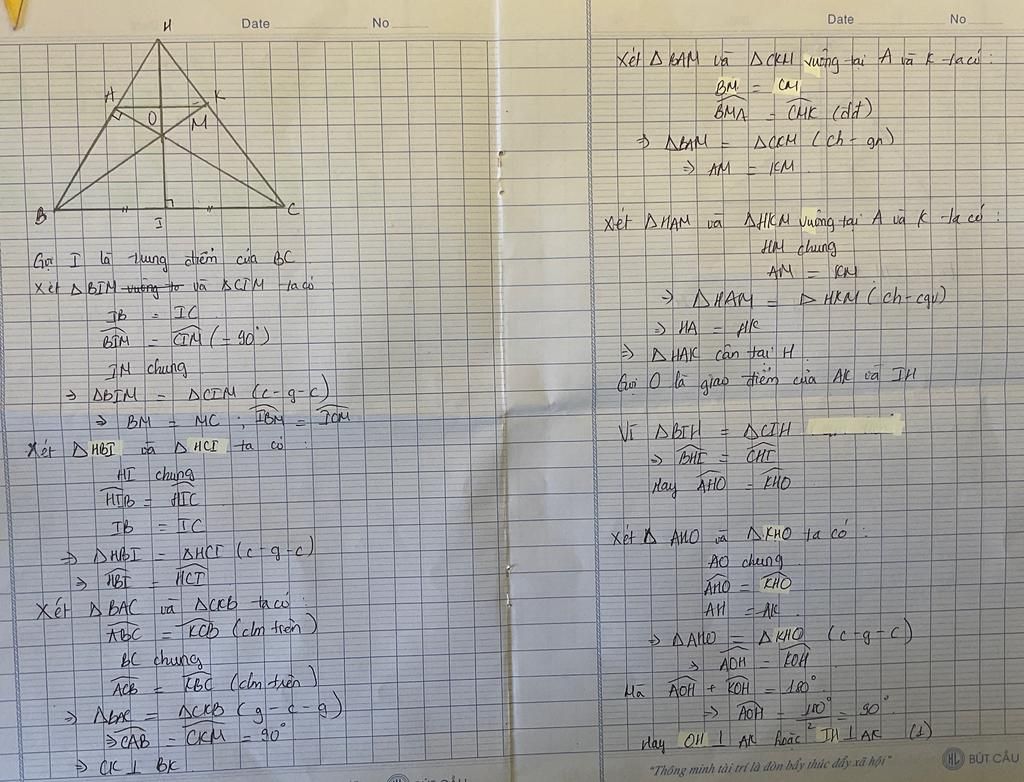 Date No
H
A
K
O
M
B
I
C
Gọi I là trung điểm của BC
Xét ΔBIM vuông to và ΔCIM ta có
IB = IC
BIM = CIM (= 90°)
IM chung
⇒ ΔBIM = ΔCIM (c-g-c)
⇒ BM = MC ; IBM = ICM
Xét ΔHBI và ΔHCI ta có :
HI chung
HIB = HIC
IB = IC
⇒ ΔHBI = ΔHCI (c-g-c)
⇒ HBI = HCI
Xét ΔBAC và ΔCKB ta có :
ABC = KCB (clm trên)
BC chung
ACB = KBC (clm trên)
⇒ ΔBAC = ΔCKB (g-c-g)
⇒ CAB = CKM = 90°
⇒ CK ⊥ BK
BÚT CẦU
Date No
Xét ΔBAM và ΔCKM vuông tại A và K ta có :
BM = CM
BMA = CMK (đđ)
⇒ ΔBAM = ΔCKM (ch-gn)
⇒ AM = KM
Xét ΔHAM và ΔHKM vuông tại A và K ta có :
HM chung
AM = KM
⇒ ΔHAM = ΔHKM (ch-cgv)
⇒ HA = HK
⇒ ΔHAK cân tại H
Gọi O là giao điểm của AK và IH
Vì ΔBIH = ΔCIH
⇒ BHI = CHI
Hay AHO = KHO
Xét Δ AHO và ΔKHO ta có
AO chung
AHO = KHO
AH = AK
⇒ ΔAHO = ΔKHO (c-g-c)
⇒ AOH = KOH
Mà AOH + KOH = 180°
⇒ AOH = 180°/2 = 90°
Hay OH ⊥ AK hoặc IH ⊥ AK (1)
"Thông minh tài trí là đòn bẩy thúc đẩy xã hội"
BÚT CẦU